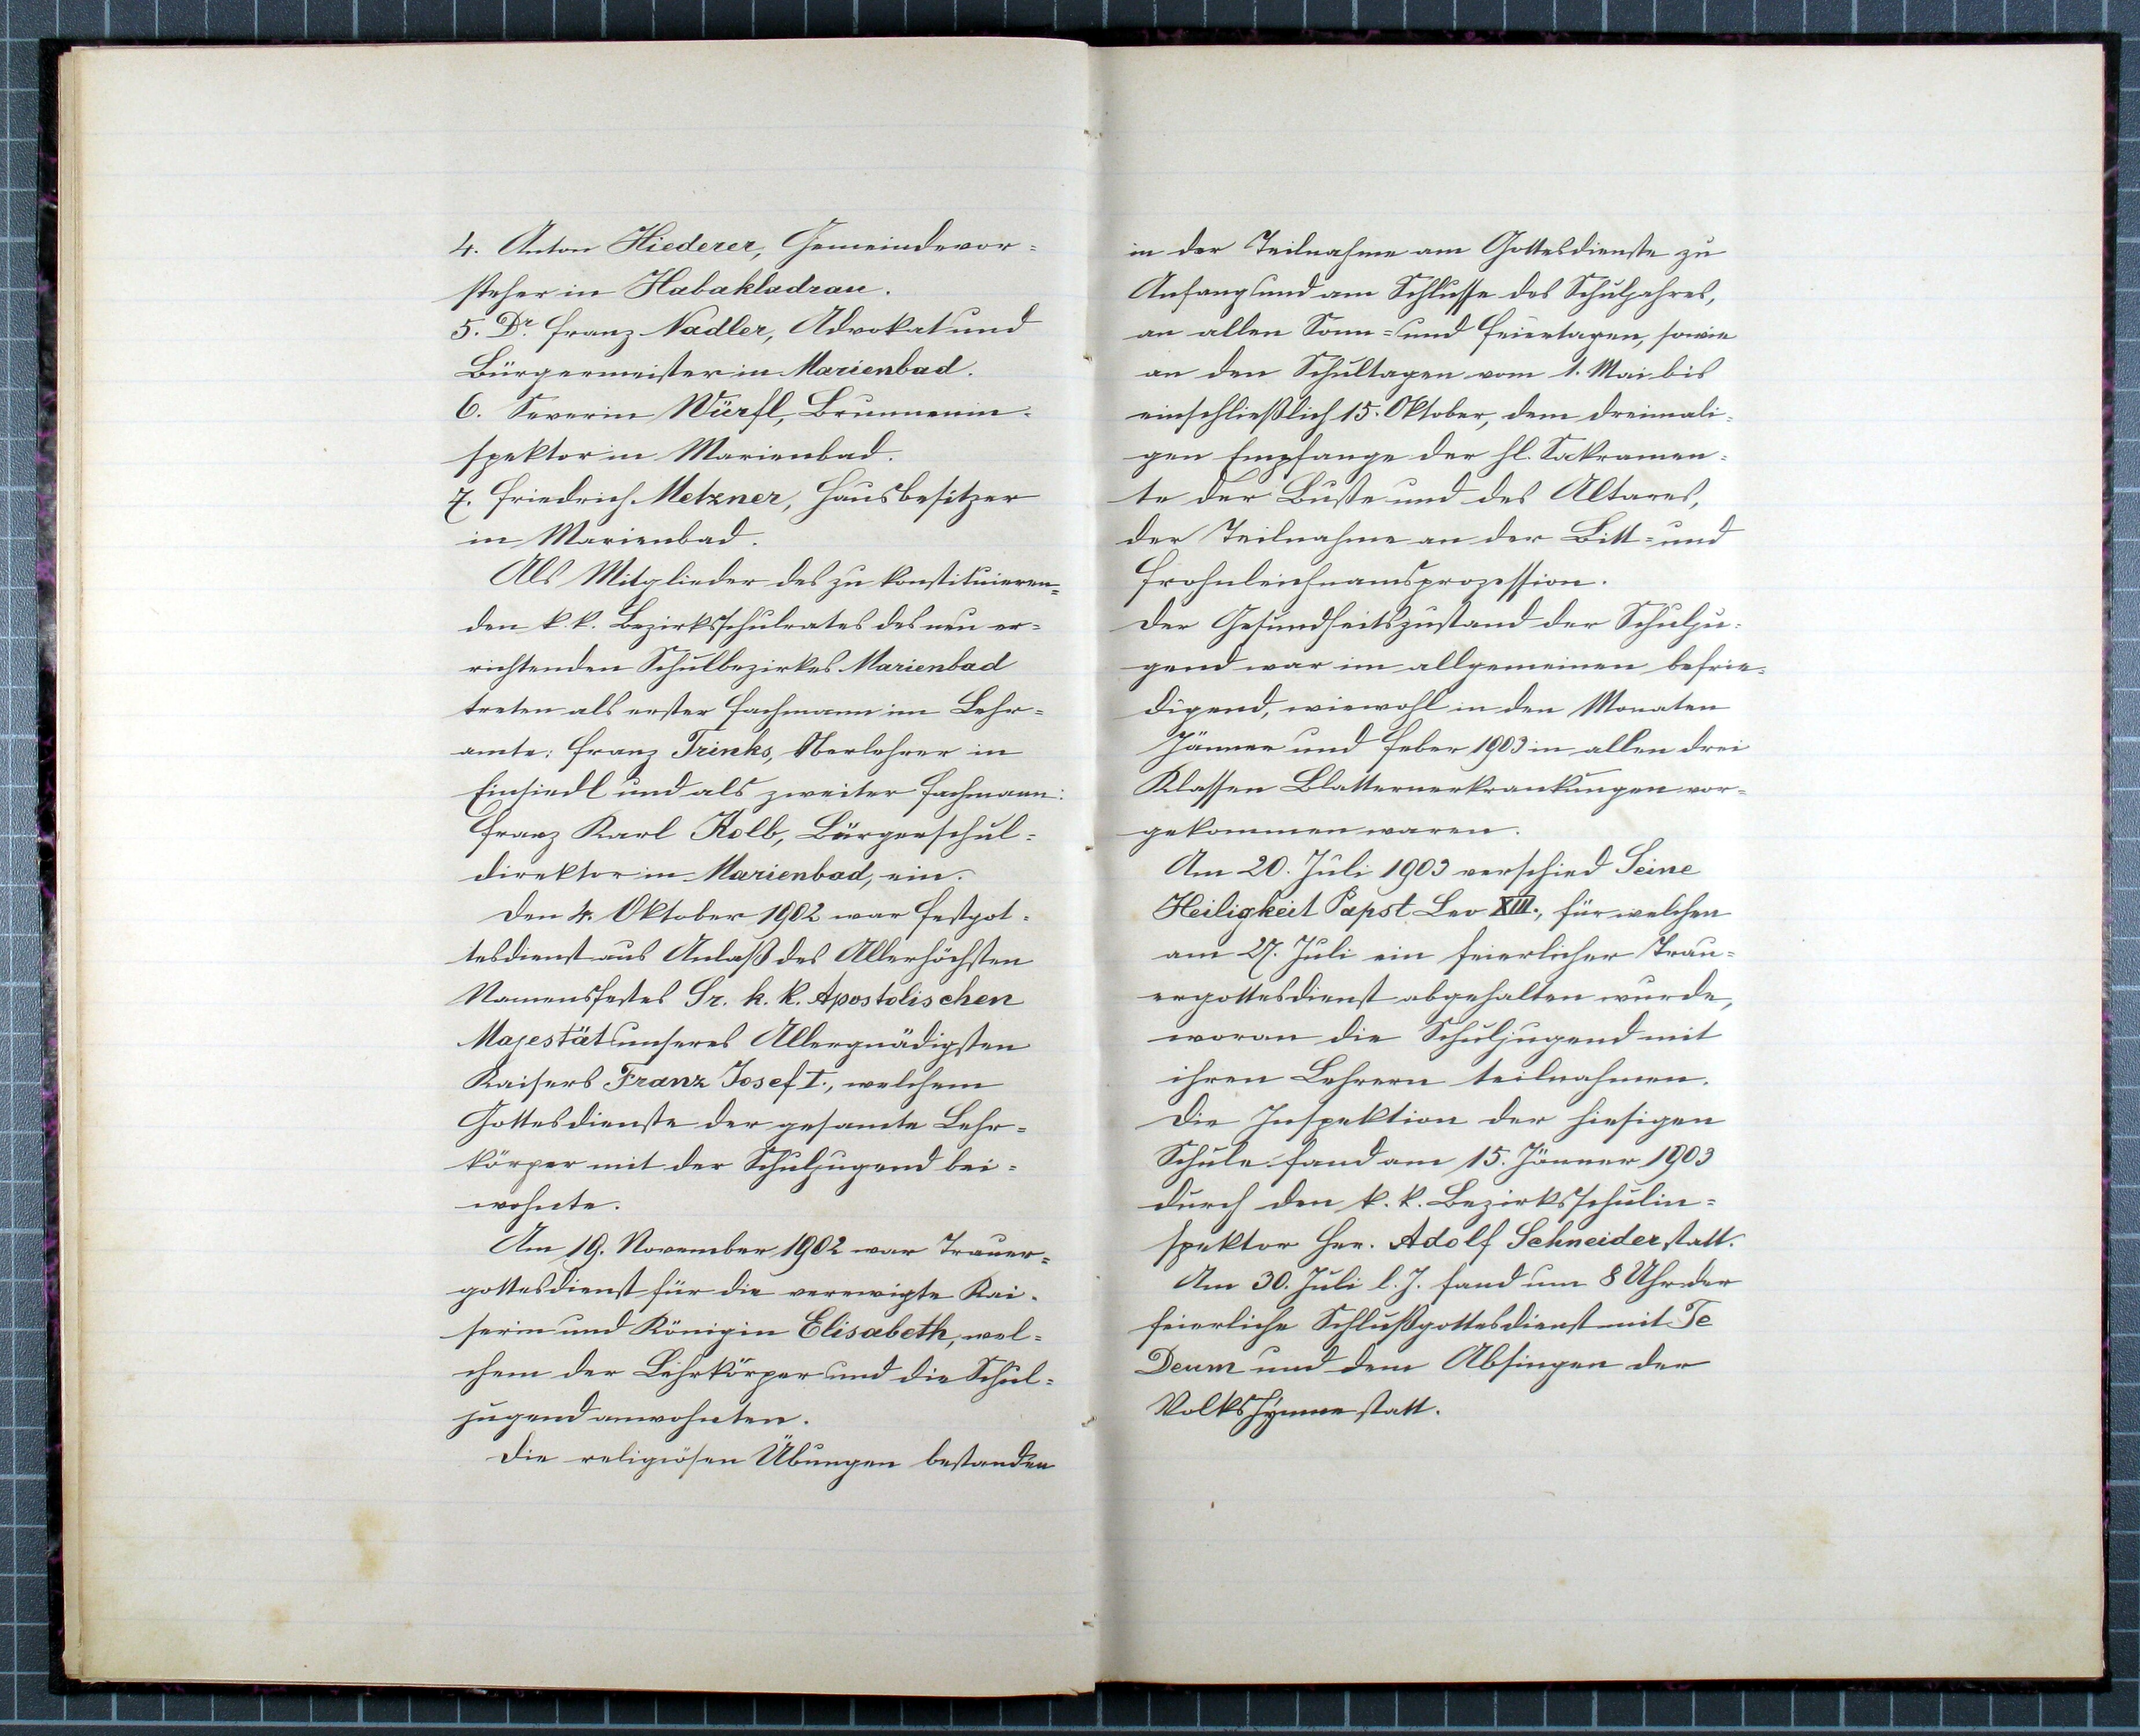 4. Anton Hiederer, Gemeindevor=
steher in Habakladrau.
5. Dr. Franz Nadler, Advokat und
Bürgermeister in Marienbad.
6. Severin Würfl, Brunnenin=
spektor in Marienbad.
7. Friedrich Metzner, Hausbesitzer
in Marienbad.
Als Mitglieder des zu konstituieren=
den k. k. Bezirksschulrates des neu er=
richtenden Schulbezirkes Marienbad
treten als erster Fachmann im Lehr=
amte: Franz Trinks, Oberlehrer in
Einsiedl und als zweiter Fachmann:
Franz Karl Kolb, Bürgerschul=
direktor in Marienbad, ein.
Den 4. Oktober 1902 war Festgot=
tesdienst aus Anlaß des Allerhöchsten
Namensfestes Sr. k. k. Apostolischen
Majestät unseres Allergnädigsten
Kaisers Franz Josef I., welchem
Gottesdienste der gesamte Lehr=
körper mit der Schuljugend bei=
wohnte.
Am 19. November 1902 war Trauer=
gottesdienst für die verewigte Kai=
serin und Königin Elisabeth, wel=
chem der Lehrkörper und die Schul=
jugend anwohnten.
Die religiösen Übungen bestanden
in der Teilnahme am Gottesdienste zu
Anfang und am Schlusse des Schuljahres,
an allen Sonn= und Feiertagen, sowie
an den Schultagen vom 1. Mai bis
einschließlich 15. Oktober, dem dreimali=
gen Empfange der hl. Sakramen=
te der Buße und des Altares,
der Teilnahme an der Bitt= und
Frohnleichnamsprozession.
Der Gesundheitszustand der Schulju=
gend war im allgemeinen befrie=
digend, wiewohl in den Monaten
Jänner und Feber 1903 in allen drei
Klassen Blatternerkrankungen vor=
gekommen waren.
Am 20. Juli 1903 verschied Seine
Heiligkeit Papst Leo XIII., für welchen
am 27. Juli ein feierlicher Trau=
ergottesdienst abgehalten wurde,
woran die Schuljugend mit
ihren Lehrern teilnahmen.
Die Inspektion der hiesigen
Schule fand am 15. Jänner 1903
durch den k. k. Bezirksschulin=
spektor Her. Adolf Schneider statt.
Am 30. Juli l. J. fand um 8 Uhr der
feierliche Schlußgottesdienst mit Te
Deum und dem Absingen der
Volkshymne statt.